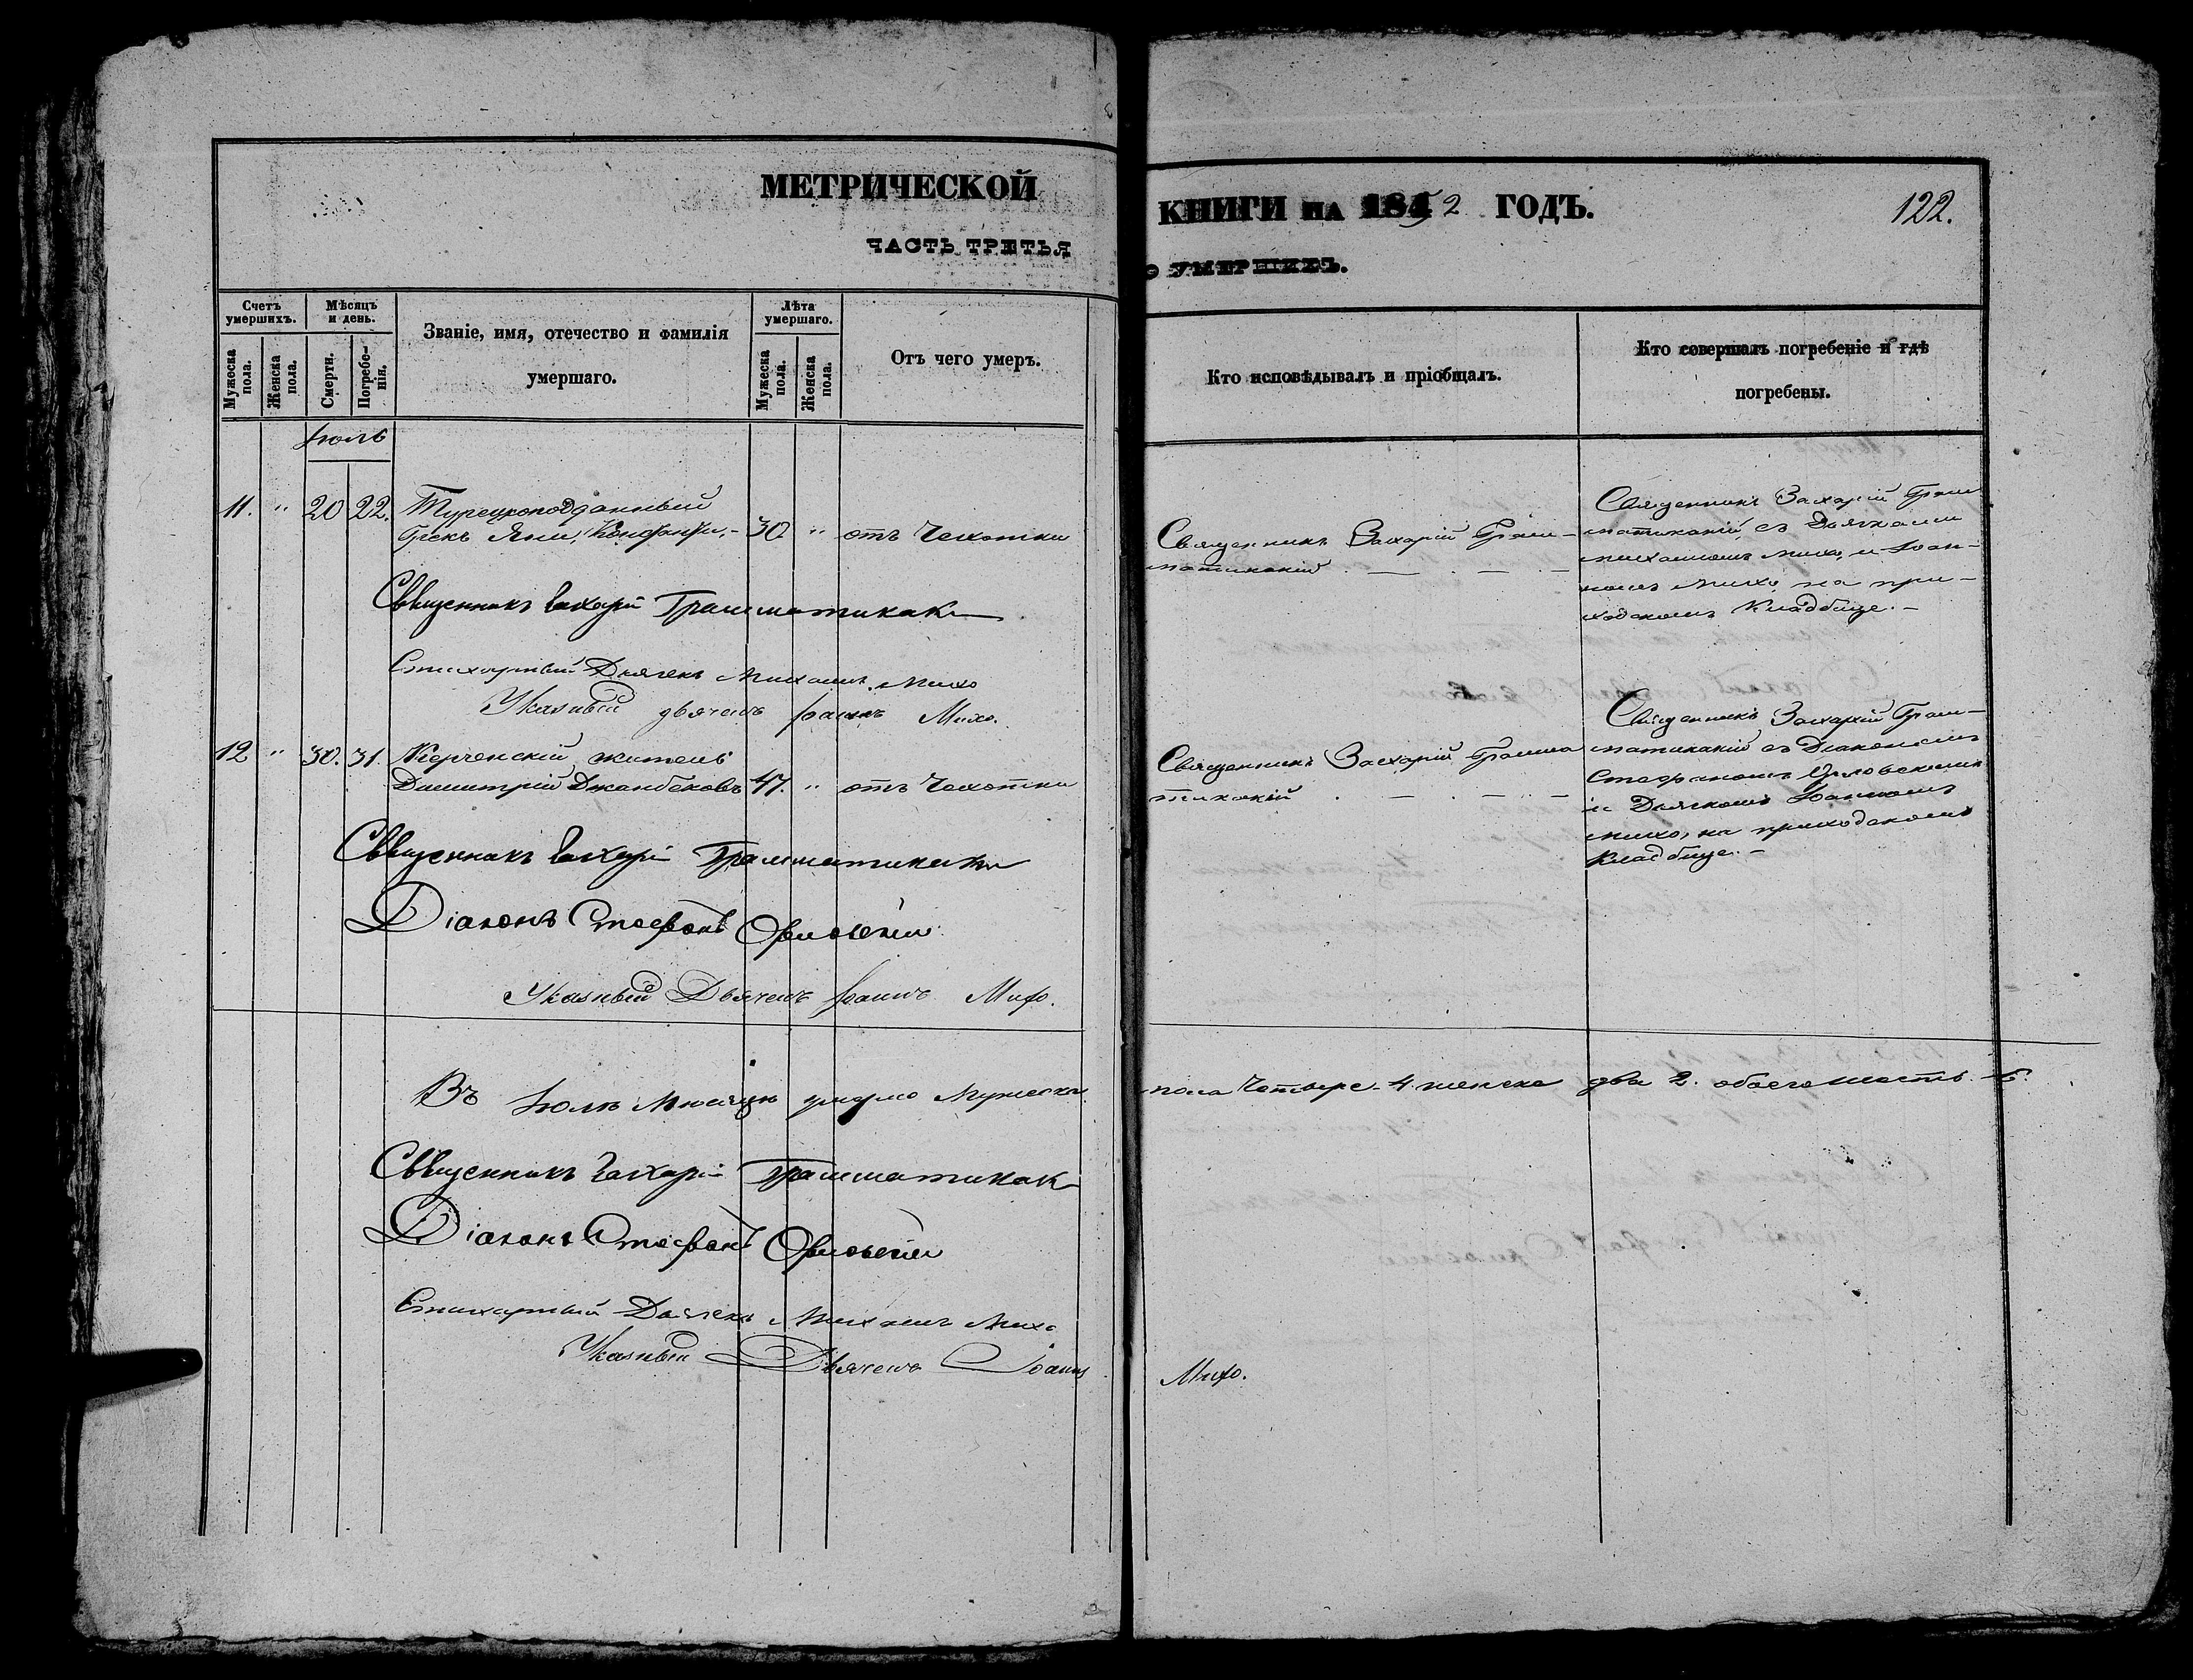 МЕТРИЧЕСКОЙ
ЧАСТЬ ТРЕТЬЯ
КНИГИ НА 1852 ГОДЪ.
122.
О УМЕРШИХЪ.
Счетъ умершихъ.
Мужеска пола.
Женска пола.
Мѣсяцъ и день.
Смерти.
Погребенія.
Званіе, имя, отечество и фамилія
умершаго.
Лѣта умершаго.
Мужеска пола.
Женска пола.
Отъ чего умеръ.
Кто исповѣдывалъ и пріобщалъ.
Кто совершалъ погребеніе и гдѣ
погребены.
Іюль
11. " 20 22. Турецкоподданный
Грекъ Яни, 30 " отъ Чахотки
Священникъ Захарій Грам-
матикакій
Священникъ Захарій Грам
матикакій, съ Дьячками
михаиломъ михо, и Іоан-
номъ михо, на при-
ходскомъ Кладбище.-
Священникъ Захарій Грамматикаки
Стихарный Дьячекъ Михаилъ Михо
Указный дьячекъ Іоаннъ Михо.
12 " 30. 31. Керченскій житель
Димитрій Джанбековъ 47. " отъ Чахотки
Священникъ Захарій Грамма
тикакій
Священникъ Захарій Грам-
матикакій съ Діакономъ
Стефаномъ Орловскимъ
и Дьячкомъ Іоанномъ
михо, на приходскомъ
Кладбище.-
Священникъ Захарій Грамматикаки
Діаконъ Стефанъ Орловскій
Указный Дьячекъ Іоаннъ Михо.
Въ Іюлѣ Мѣсяцѣ умерло Мужеска пола Четыре 4 женска два 2. обоего шесть 6.
Священникъ Захарій Грамматикаки
Діаконъ Стефанъ Орловскій
Стихарный Дьячекъ Михаилъ Михо
Указный Дьячекъ Іоаннъ Михо.